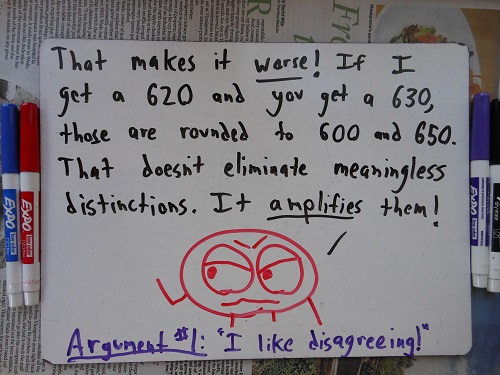 That makes it worse! If I
get a 620 and you get a 630,
those are rounded to 600 and 650.
That doesn't eliminate meaningless
distinctions. It amplifies them!
Argument #1: "I like disagreeing!"
EXPO
EXPO
EXPO